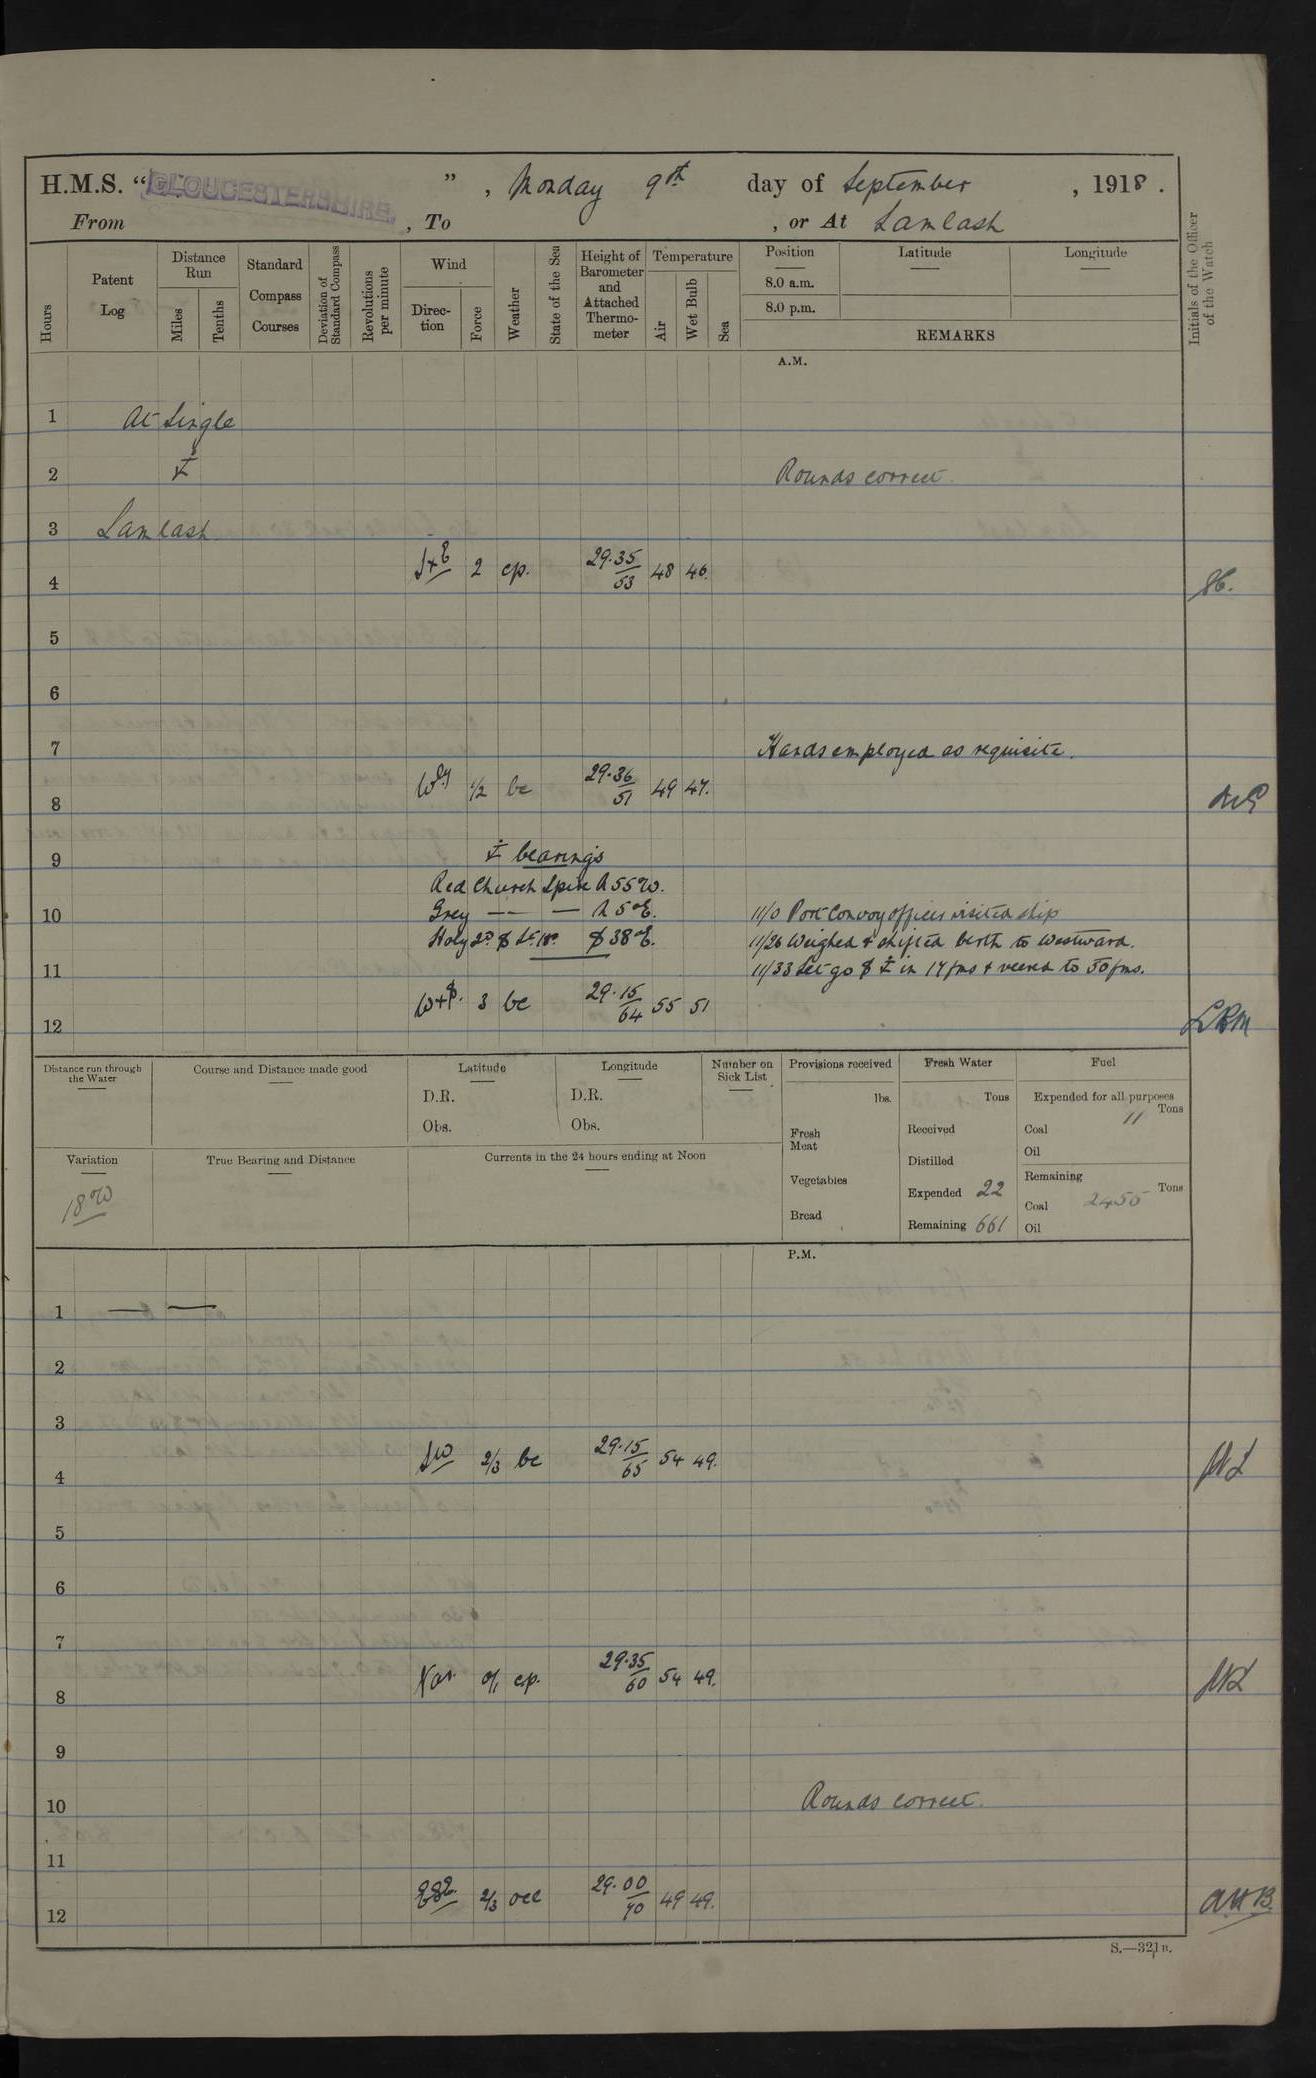 H.M.S. “GLOUCESTERSHIRE” , Monday 9th day of September , 1918 .
From , To , or At Lamlash
Hours
Patent Log
Distance Run
Miles
Tenths
Standard Compass Courses
Deviation of Standard Compass
Revolutions per minute
Wind
Direction
Force
Weather
State of the Sea
Height of Barometer and Attached Thermometer
Temperature
Air
Wet Bulb
Sea
Position
8.0 a.m.
8.0 p.m.
Latitude
Longitude
REMARKS
Initials of the Officer of the Watch
A.M.
1 At Single
2 Rounds correct.
3 Lamlash
4 2 cp. 29.35/53 48 46.
5
6
7 Hands employed as requisite.
8 Wly 1/2 bc 29.36/51 49 47.
9 bearings
Red Church Spire N 55 W.
10 Grey — — N 5 E. 11/0 Port Convoy officer visited ship
S 38 E. 11/26 Weighed & shifted berth to Westward.
11 11/33 Let go in 17 fms & veered to 50 fms.
12 3 bc 29.15/64 55 51 LRM
Distance run through the Water
Course and Distance made good
Latitude
D.R.
Obs.
Longitude
D.R.
Obs.
Number on Sick List
Provisions received
lbs.
Fresh Meat
Vegetables
Bread
Fresh Water
Tons
Received
Distilled
Expended 22
Remaining 661
Fuel
Expended for all purposes
Tons
Coal 11
Oil
Remaining
Tons
Coal 2455
Oil
Variation
18 W
True Bearing and Distance
Currents in the 24 hours ending at Noon
P.M.
1
2
3
4 SW 2/3 bc 29.15/65 54 49.
5
6
7
8 Var. 0/1 cp. 29.35/60 54 49.
9
10 Rounds correct.
11
12 ESE 2/3 occ 29.00 49 49. AHB.
S.—321B.